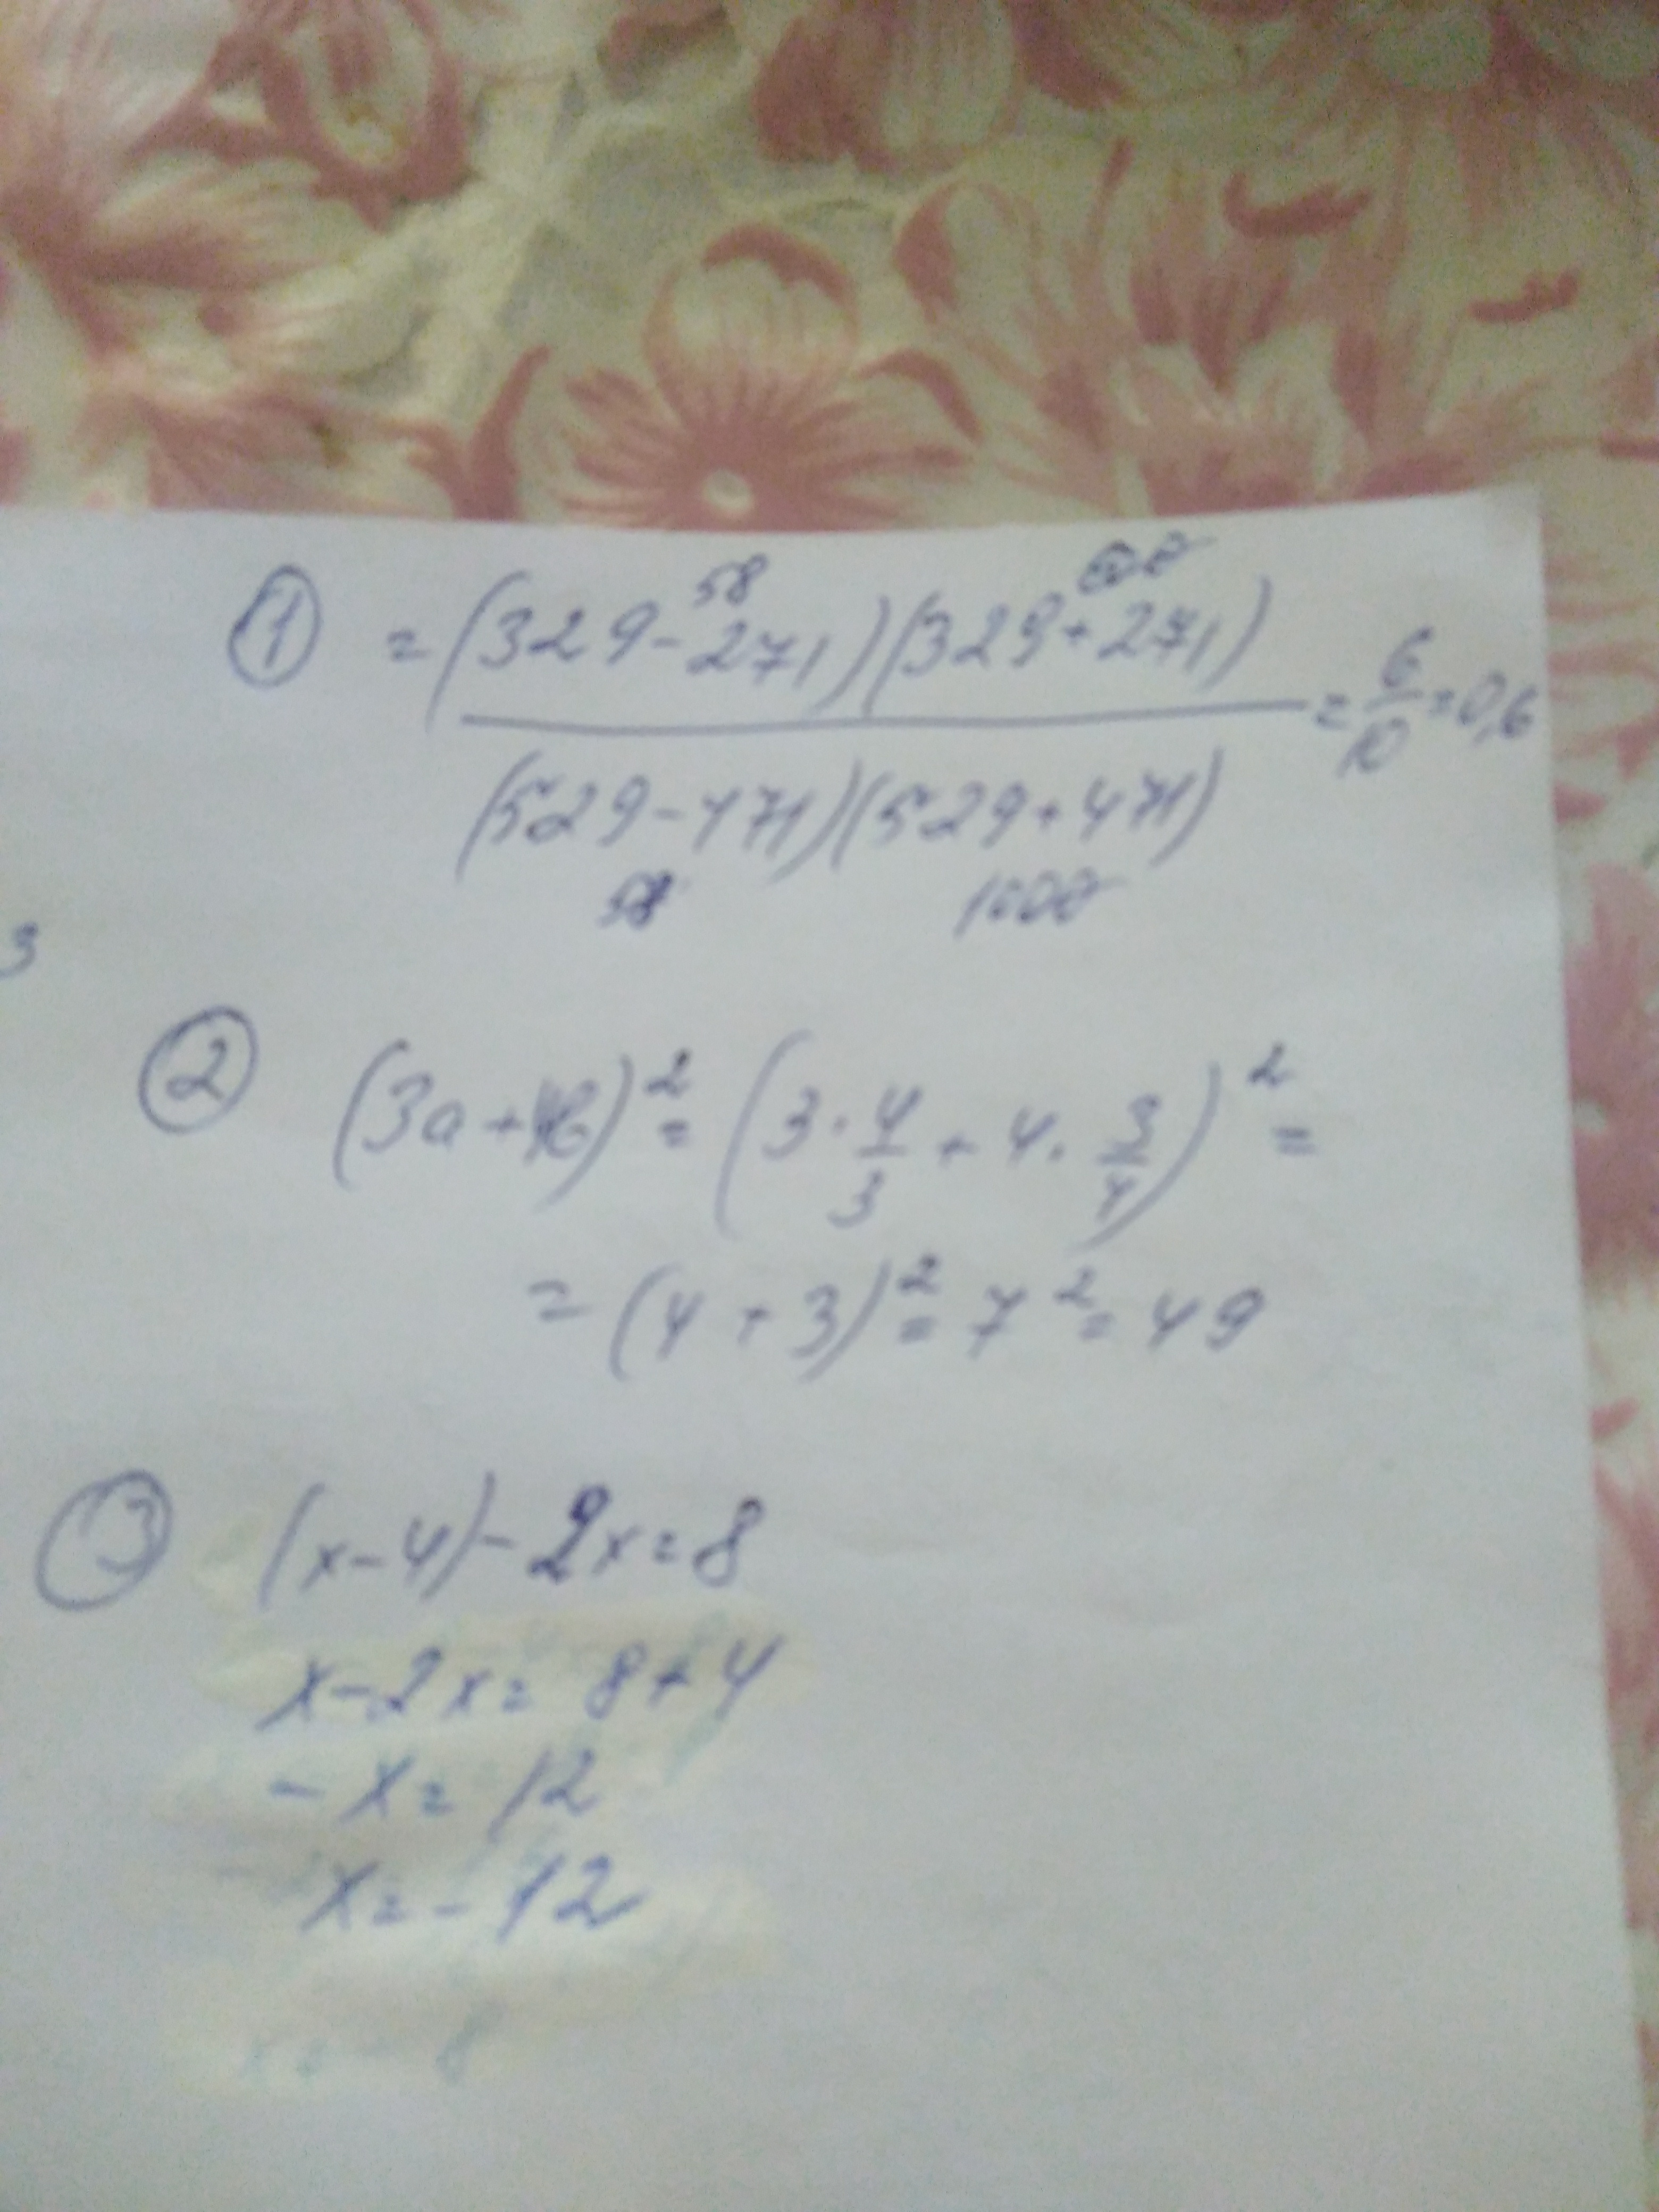 3
① = (329-271)(329+271) / (529-471)(529+471) = 6/10 = 0,6
58 600
58 1000
② (3a+4b)² = (3·4/3 + 4·3/4)² =
= (4+3)² = 7² = 49
③ (x-4)-2x=8
x-2x=8+4
-x=12
x=-12